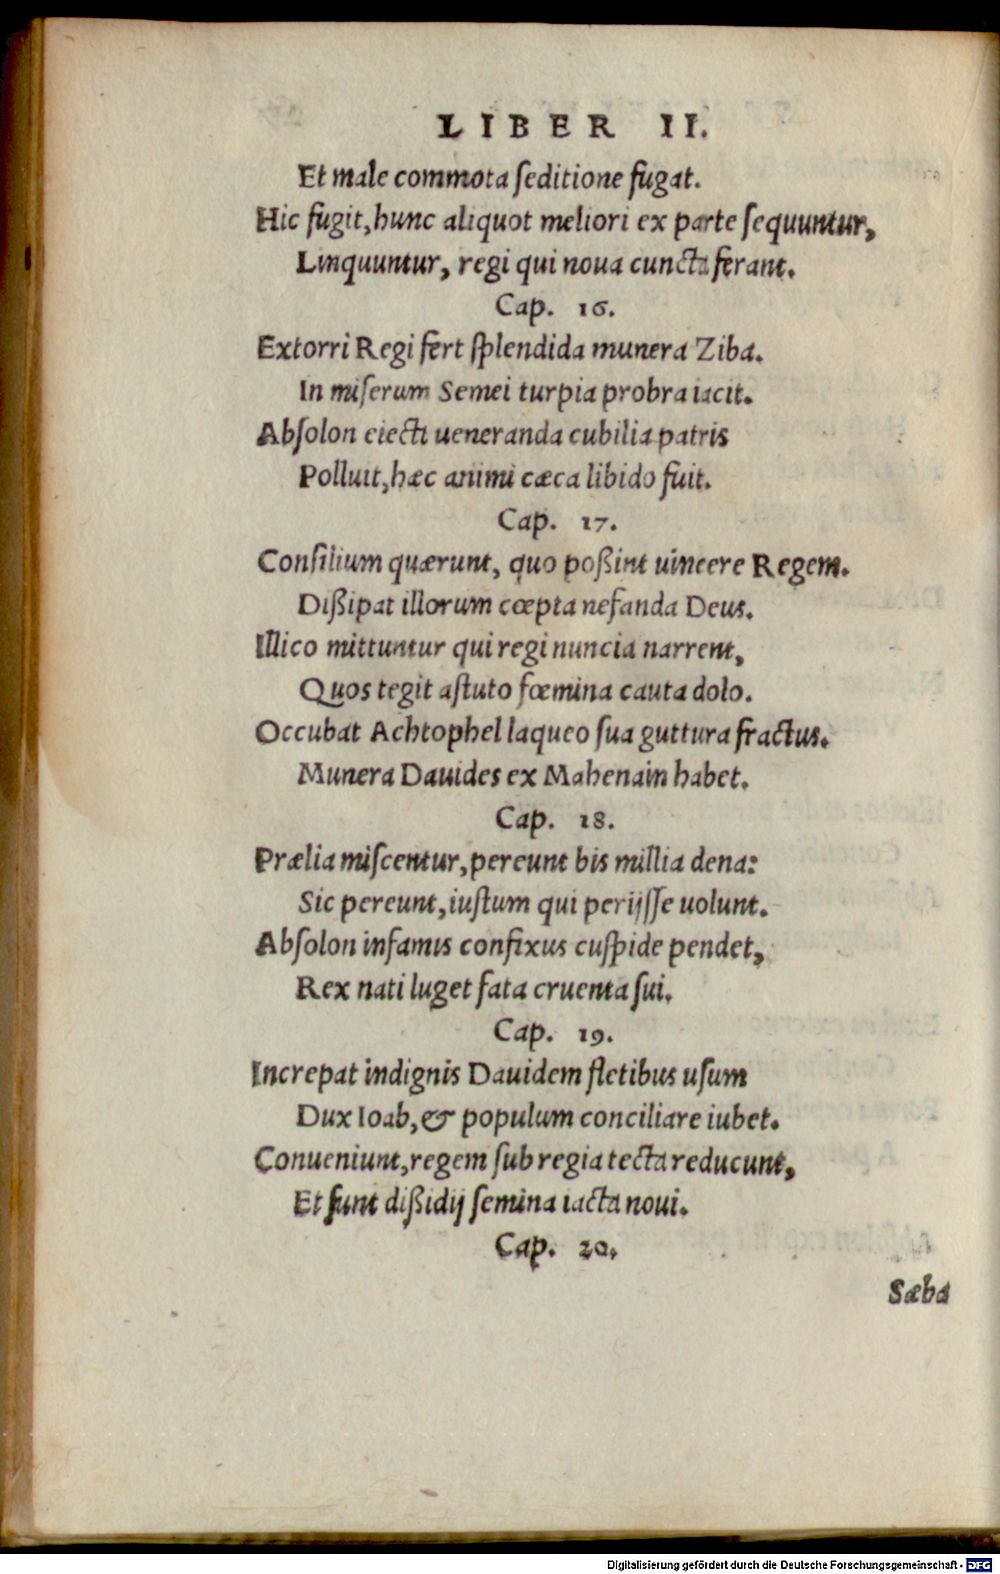 LIBER II.
Et male commota ſeditione fugat.
Hic fugit, hunc aliquot meliori ex parte ſequuntur,
Linquuntur, regi qui noua cuncta ferant.
Cap. 16.
Extorri Regi fert ſplendida munera Ziba.
In miſerum Semei turpia probra iacit.
Abſolon eiecti ueneranda cubilia patris
Polluit, hæc animi cæca libido fuit.
Cap. 17.
Conſilium quærunt, quo poßint uincere Regem.
Dißipat illorum cœpta nefanda Deus.
Illico mittuntur qui regi nuncia narrent,
Quos tegit aſtuto fœmina cauta dolo.
Occubat Achtophel laqueo ſua guttura fractus.
Munera Dauides ex Mahenain habet.
Cap. 18.
Prælia miſcentur, pereunt bis millia dena:
Sic pereunt, iuſtum qui perijſſe uolunt.
Abſolon infamis confixus cuſpide pendet,
Rex nati luget fata cruenta ſui.
Cap. 19.
Increpat indignis Dauidem fletibus uſum
Dux Ioab, & populum conciliare iubet.
Conueniunt, regem ſub regia tecta reducunt,
Et ſunt dißidij ſemina iacta noui.
Cap. 20.
Sæba
Digitalisierung gefördert durch die Deutsche Forschungsgemeinschaft - DFG